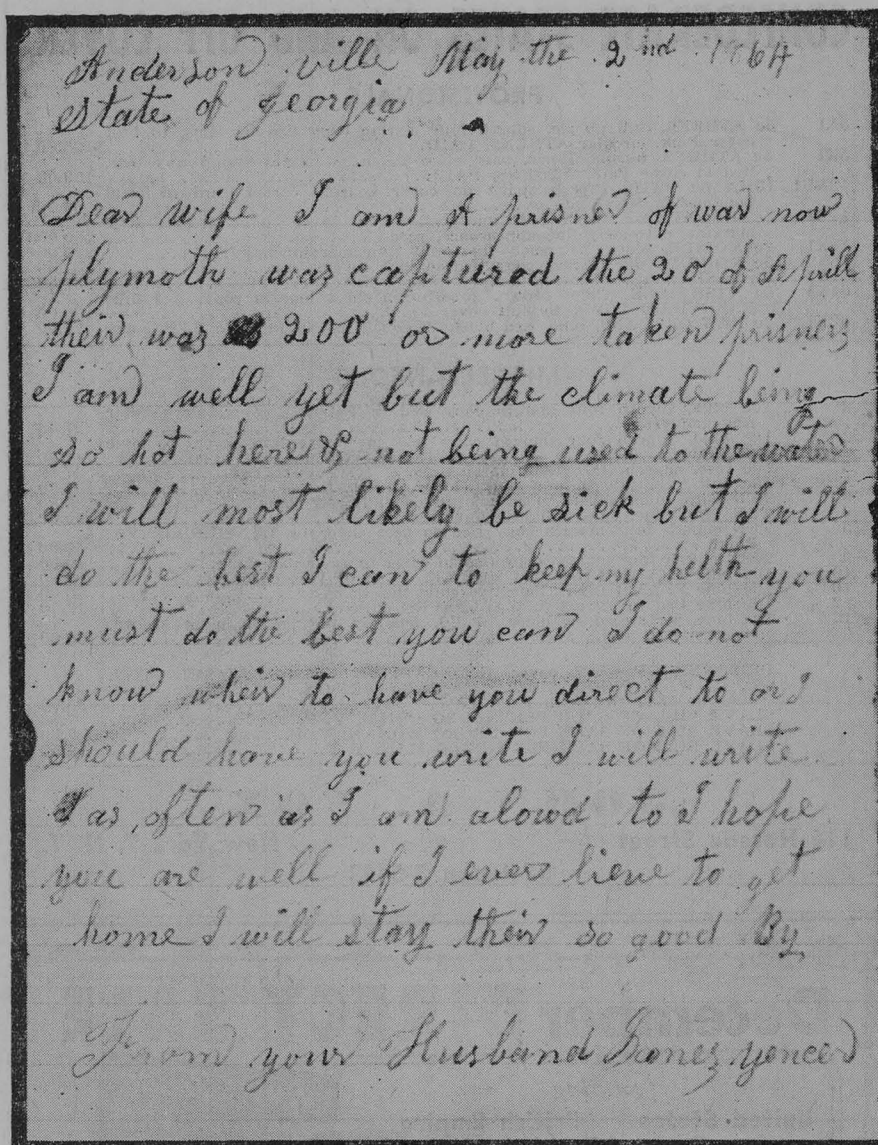 Anderson ville May the 2nd 1864
State of georgia
Dear wife I am A prisner of war now
plymoth was captured the 20 of Aprill
their was 200 or more taken prisners
I am well yet but the climate being
so hot here & not being used to the water
I will most likely be sick but I will
do the best I can to keep my helth you
must do the best you can I do not
know wheir to have you direct to or I
should have you write I will write
as often as I am alowd to I hope
you are well if I ever lieve to get
home I will stay their so good By
From your Husband